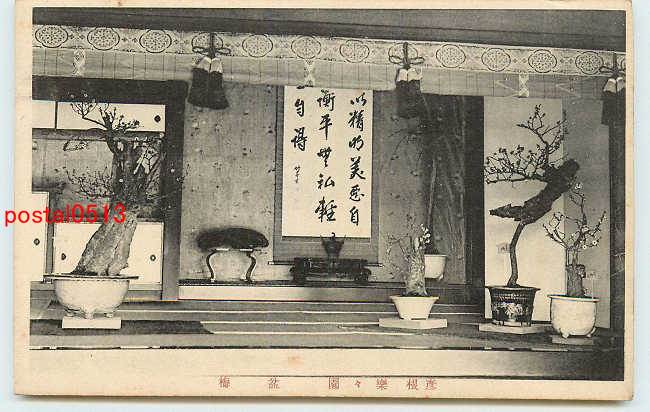 以精明美惡自
衡平無私輕
自得
postal0513
彦根樂々園 盆梅